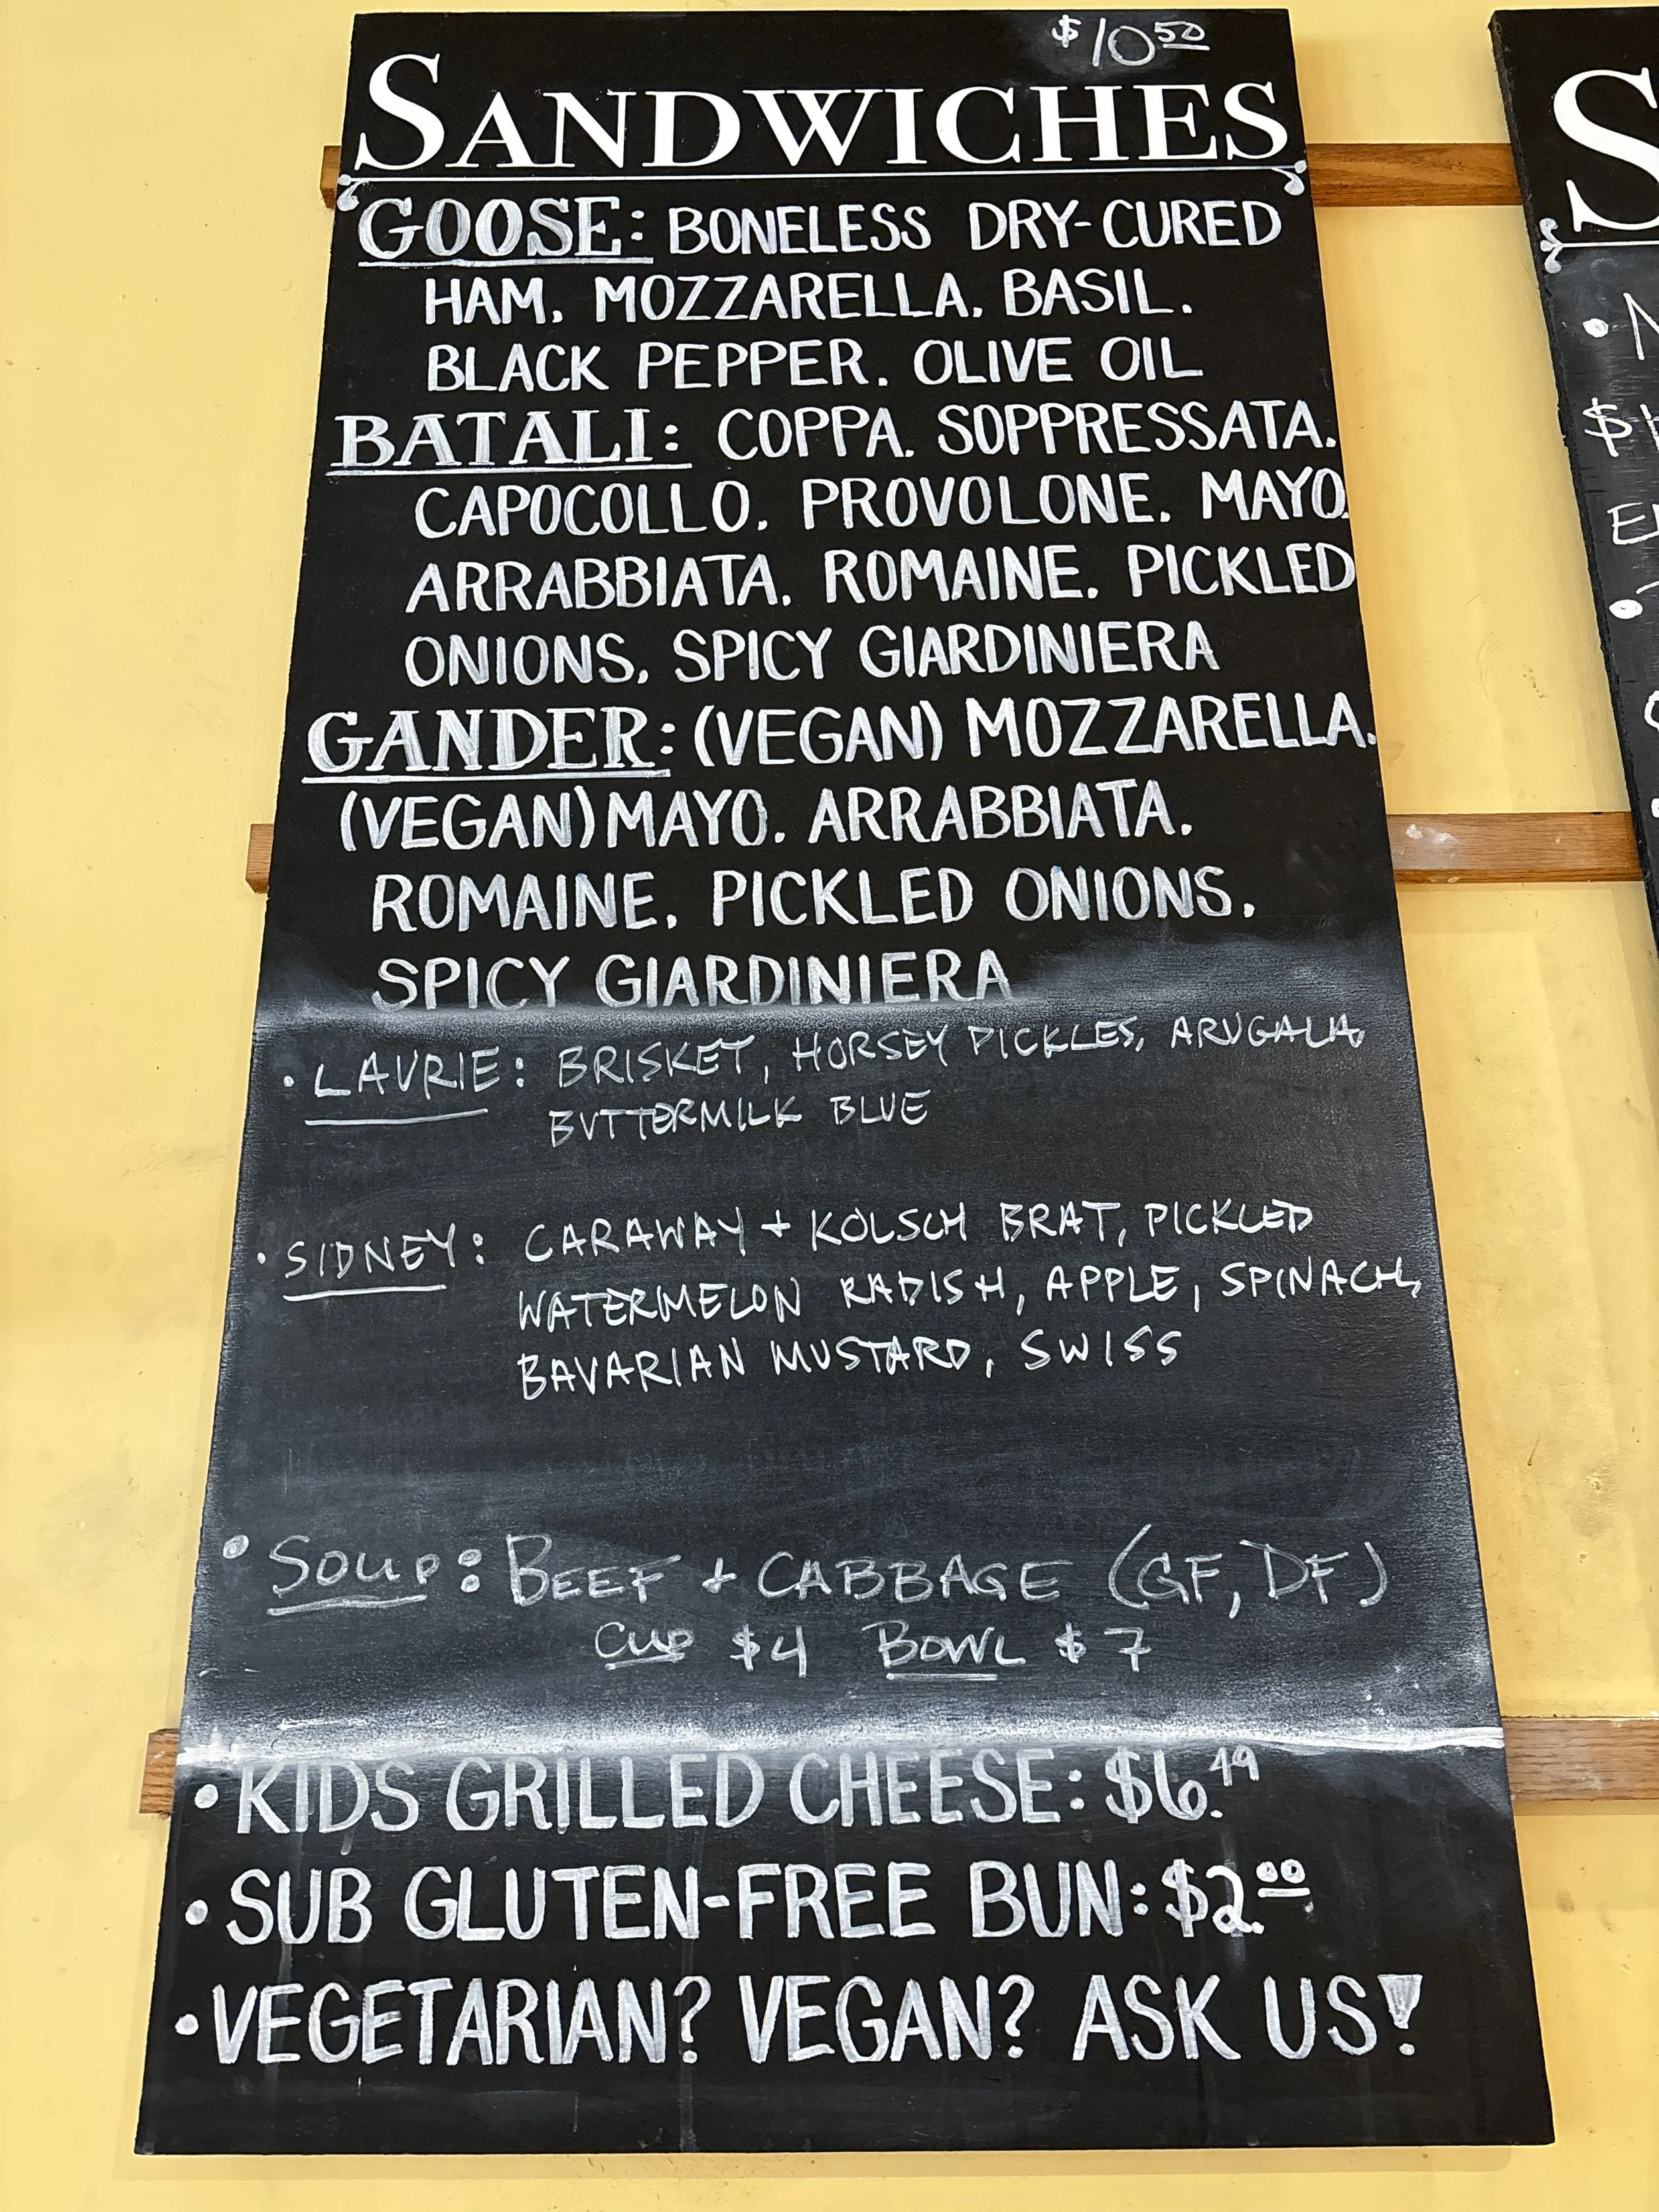 $10.50
SANDWICHES
GOOSE: BONELESS DRY-CURED
HAM. MOZZARELLA. BASIL.
BLACK PEPPER. OLIVE OIL
BATALI: COPPA. SOPPRESSATA.
CAPOCOLLO. PROVOLONE. MAYO.
ARRABBIATA. ROMAINE. PICKLED
ONIONS. SPICY GIARDINIERA
GANDER: (VEGAN) MOZZARELLA.
(VEGAN) MAYO. ARRABBIATA.
ROMAINE. PICKLED ONIONS.
SPICY GIARDINIERA
• LAURIE: BRISKET, HORSEY PICKLES, ARUGALA,
BUTTERMILK BLUE
• SIDNEY: CARAWAY + KOLSCH BRAT, PICKLED
WATERMELON RADISH, APPLE, SPINACH,
BAVARIAN MUSTARD, SWISS
• SOUP: BEEF + CABBAGE (GF, DF)
CUP $4 BOWL $7
• KIDS GRILLED CHEESE: $6.49
• SUB GLUTEN-FREE BUN: $2.00
• VEGETARIAN? VEGAN? ASK US!